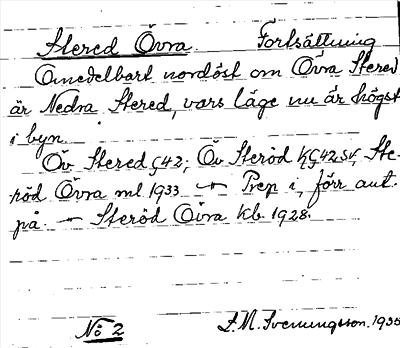 Stered Övra. Fortsättning
Omedelbart nordöst om Övra Stered
är Nedra Stered, vars läge nu är högst
i byn.
Öv Stered G42; Öv Steröd KG42SV, Ste-
röd Övra ml 1933 — Prep i, förr aut.
på. — Steröd Övra kb 1928.
No 2 F.M. Svenungsson. 1935